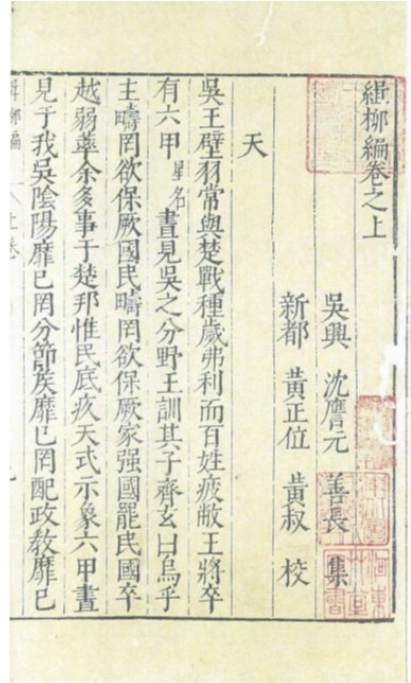 緝柳編卷之上
吳興 沈膺元 善長 集
新都 黃正位 黃叔 校
天
吳王壁羽常與楚戰種歲弗利而百姓疲敝王將卒
有六甲星名晝見吳之分野王訓其子齊玄曰烏乎
主疇罔欲保厥國民疇罔欲保厥家强國罷民國卒
越弱余多事于楚邦惟民底疚天式示象六甲晝
見于我吳陰陽靡已罔分節族靡已罔配政教靡已
柳編 上卷